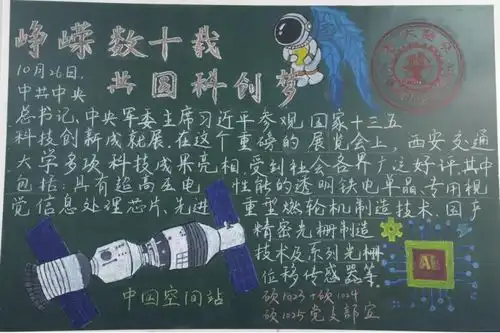 峥嵘数十载
共圆科创梦
10月26日,
中共中央
总书记、中央军委主席习近平参观国家十三五
科技创新成就展,在这个重磅的展览会上,西安交通
大学多项科技成果亮相,受到社会各界广泛好评,其中
包括:具有超高压电、性能的透明铁电单晶、专用视
觉信息处理芯片、先进重型燃轮机制造技术、国产
精密光栅制造
技术及系列光栅
位移传感器等.
中国空间站
AI
硕1023+硕1024
硕1025党支部宣